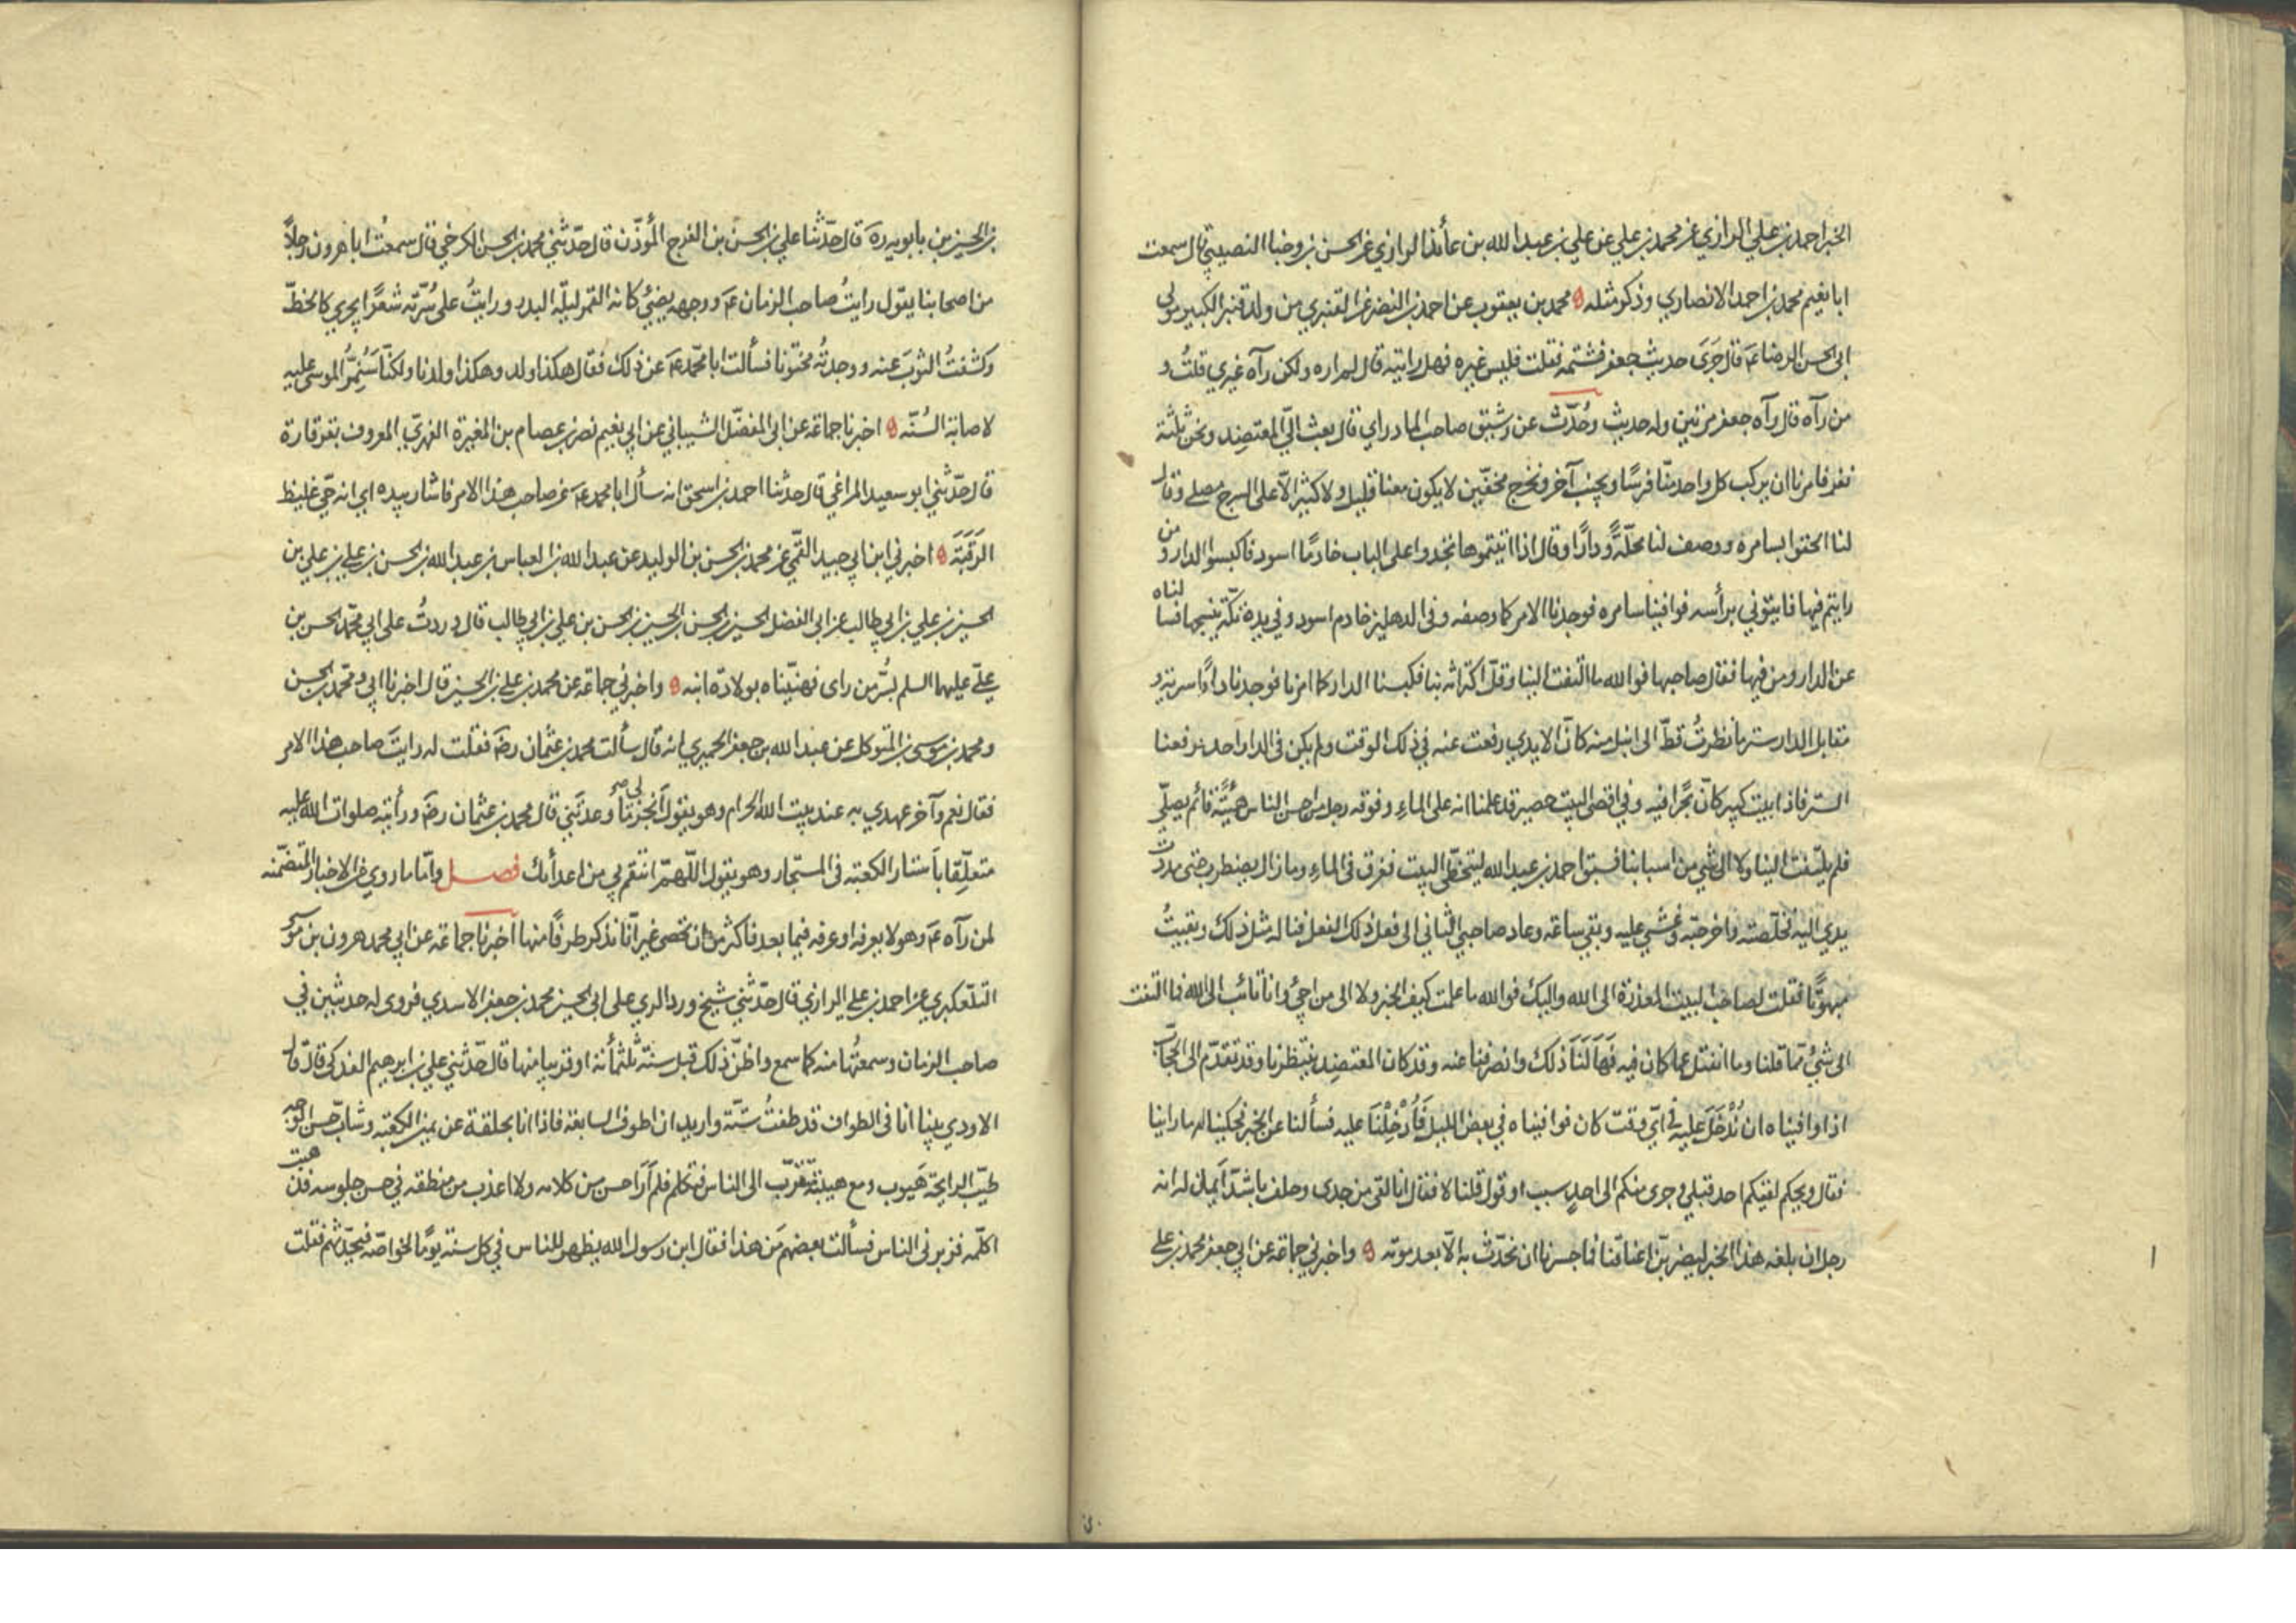 الخبر احمد بن علي الرازي عن محمد بن علي عن علي بن عبد الله بن عائذ الرازي عن الحسن بن وجنا النصيبي قال سمعت
ابا نعيم محمد بن احمد الانصاري وذكر مثله محمد بن يعقوب عن احمد بن النضر عن القنبري من ولد قنبر الكبير مولى
ابي الحسن الرضا ع قال جَرَى حديث جعفر فشتمه فقلت فليس غيره فهل رايته قال لم اره ولكن رآه غيري قلتُ و
من رآه قال رآه جعفر مرتين وله حديث وحُدّث عن رشيق صاحب المادراي قال بعث اليّ المعتضِد ونحن ثلثة
نفر فامرنا ان يركب كل واحد منّا فرسًا ويجنب آخر ونخرج مخفّين لا يكون معنا قليل ولا كثير الّا على السرج مصلى وقال
لنا الحقوا بسامره ووصف لنا محلّةً ودارًا وقال اذا اتيتموها تجدوا على الباب خادمًا اسود فاكبسوا الدار ومن
رايتم فيها فايتوني برأسه فوافينا سامره فوجدنا الامر كما وصفه وفي الدهليز خادم اسود وفي يده تكّة ينسجها فسالناه
عن الدار ومن فيها فقال صاحبها فوالله ما التفت الينا وقلّ اكتراثه بنا فكبسنا الدار كما امرنا فوجدنا دارًا سرية و
مقابل الدار ستر ما نظرتُ قطّ الى انبل منه كانّ الايدي رفعت عنه في ذلك الوقت ولم يكن في الدار احد فرفعنا
الستر فاذا بيت كبير كانّ بحرًا فيه وفي اقصى البيت حصير قد علمنا انه على الماء وفوقه رجل من احسن الناس هيئةً قائم يصلّي
فلم يلتفت الينا ولا الى شيء من اسبابنا فسبق احمد بن عبد الله ليتخطّى البيت فغرق في الماء وما زال يضطرب حتى مددت
يدي اليه فخلّصته واخرجته وغُشي عليه وبقي ساعة وعاد صاحبي الثاني الى فعل ذلك الفعل فناله مثل ذلك وبقيتُ
مبهوتًا فقلت لصاحب البيت المعذرة الى الله واليك فوالله ما علمت كيف الخبر ولا الى من اجيء وانا تائب الى الله فما التفت
الى شيء مما قلنا وما انفتل عما كان فيه فَهَالَنَا ذلك وانصرفنا عنه وقد كان المعتضِد ينتظرنا وقد تقدّم الى الحجّاب
اذا وافيناه ان نُدْخَلَ عليه في ايّ وقت كان فوافيناه في بعض الليل فَأُدْخِلْنَا عليه فسألنا عن الخبر فحكينا له ما راينا
فقال ويحكم لقيكم احد قبلي وجرى منكم الى احدٍ سبب او قول قلنا لا فقال انا لقي من جدى وحلف باشدّ ايمان له انه
رجل ان بلغه هذا الخبر ليضربنّ اعناقنا فما جسرنا ان نحدّث به الّا بعد موته واخبرني جماعة عن ابي جعفر محمد بن علي
بن الحسين بن بابويه ره قال حدّثنا علي بن الحسن بن الفرج المُؤذّن قال حدّثني محمد بن الحسن الكرخي قال سمعتُ ابا هرون رجلاً
من اصحابنا يقول رايتُ صاحب الزمان ع ووجهه يضيءُ كانه القمر ليلة البدر ورايتُ على سُرّته شعرًا يجري كالخطّ
وكشفتُ الثوبَ عنه ووجدتُه مختونا فسألت ابا محمّد ع عن ذلك فقال هكذا ولد وهكذا ولدنا ولكنّا سَنُمِرُّ الموسى عليه
لاصابة السُنّه اخبرنا جماعة عن ابي المفضّل الشيباني عن ابي نعيم نصر بن عصام بن المغيرة الفهريّ المعروف بقرقارة
قال حدّثني ابو سعيد المراغي قال حدثنا احمد بن اسحق انه سأل ابا محمد ع عن صاحب هذا الامر فاشار بيده اي انه حيّ غليظ
الرَقَبَة اخبرني ابن ابي جيد القمّي عن محمد بن الحسن بن الوليد عن عبد الله بن العباس بن عبد الله بن الحسن بن علي بن علي بن
الحسين بن علي بن ابي طالب عن ابي الفضل الحسين بن الحسن بن الحسين بن الحسن بن علي بن ابي طالب قال وردتُ على ابي محمّد الحسن بن
عليّ عليهما السلم بسُرّ من راى فهنّيناه بولادة ابنه واخبرني جماعة عن محمد بن علي بن الحسين قال اخبرنا ابي ومحمد بن الحسن
ومحمد بن موسى بن المتوكل عن عبد الله بن جعفر الحميري انه قال سألت محمد بن عثمان رضَ فقلت له رايتَ صاحب هذا الامر
فقال نعم وآخر عهدي به عند بيت الله الحرام وهو يقول اَنجز لي ما وعدتَني قال محمد بن عثمان رضَ ورأيته صلوات الله عليه
متعلّقا باَستار الكعبة في المستجار وهو يقول اللّهمّ انتقم لي من اعدائك فصل وامّا ما روي من الاخبار المتضمّنه
لمن رآه ع وهو لا يعرفه او عرفه فيما بعد فاكثر من ان تحصى غير انّا نذكر طرفًا منها اخبرنا جماعة عن ابي محمد هرون بن موسى
التلّعكبري عن احمد بن علي الرازي قال حدّثني شيخ ورد الري على ابي الحسين محمد بن جعفر الاسدي فروى له حديثين في
صاحب الزمان وسمعتُها منه كما سمع واظنّ ذلك قبل سنة ثلثمائة او قريبا منها قال حدّثني علي بن ابرهيم الفدكي قال قال
الاودي بينا انا في الطواف قد طفتُ ستّة واريد ان اطوف السابعة فاذا انا بحلقة عن يمين الكعبة وشابّ حسن الوجه
طيّب الرايحة هَيوب ومع هيبته تقرّب الى الناس فتكلم فلم اَرَ احسن من كلامه ولا اعذب من منطقه في حسن جلوسه فذهبت
اكلّمه فزبرني الناس فسألت بعضهم مَن هذا فقال ابن رسول الله يظهر للناس في كل سنة يومًا لخواصّه فيحدّثهم فقلت